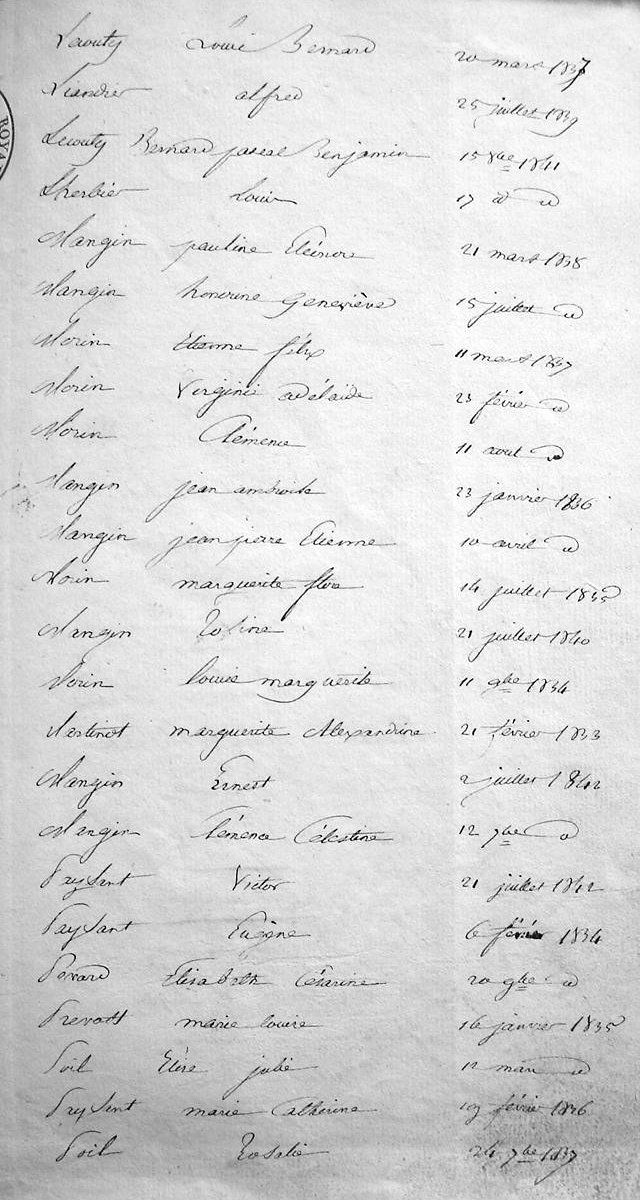 Lecouty Louis Bernard 20 mars 1837
Liandier alfred 25 juillet 1839
Lecouty Bernard pascal Benjamin 15 8bre 1841
ROYA
Lherbier Louis 17 d d
Mangin pauline Eléonore 21 mars 1838
Mangin honorine Geneviève 15 juillet d
Morin Etienne félix 11 mars 1837
Morin Virginie adélaide 23 février d
Morin Clémence 11 aout d
Mangin jean ambroise 23 janvier 1836
Mangin jean pierre Etienne 10 avril d
Morin marguerite flore 14 juillet 1835
Mangin Rosine 21 juillet 1840
Morin louise marguerite 11 9bre 1834
Martinot marguerite Alexandrine 21 février 1833
Mangin Ernest 2 juillet 1842
Mangin Clémence Célestine 12 7bre d
Paysant Victor 21 juillet 1842
Paysant Eugène 6 février 1834
Elisabeth Césarine 20 9bre d
Prevost marie louise 16 janvier 1835
Poil Elise julie 12 mars d
Paysant marie Catherine 19 février 1836
Poil Rosalie 24 7bre 1837